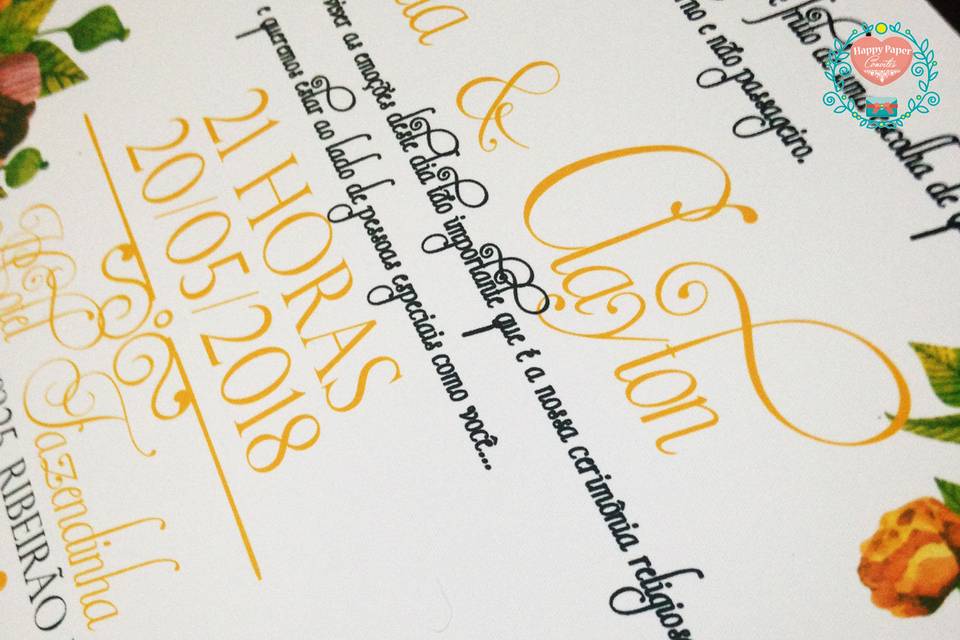 é fruto de uma escolha de
no e não passageiro.
&
Clayton
viver as emoções deste dia tão importante que é a nossa cerimônia religiosa
e queremos estar ao lado de pessoas especiais como você...
21 HORAS
20/05/2018
Fazendinha
RIBEIRÃO
Happy Paper
Convites